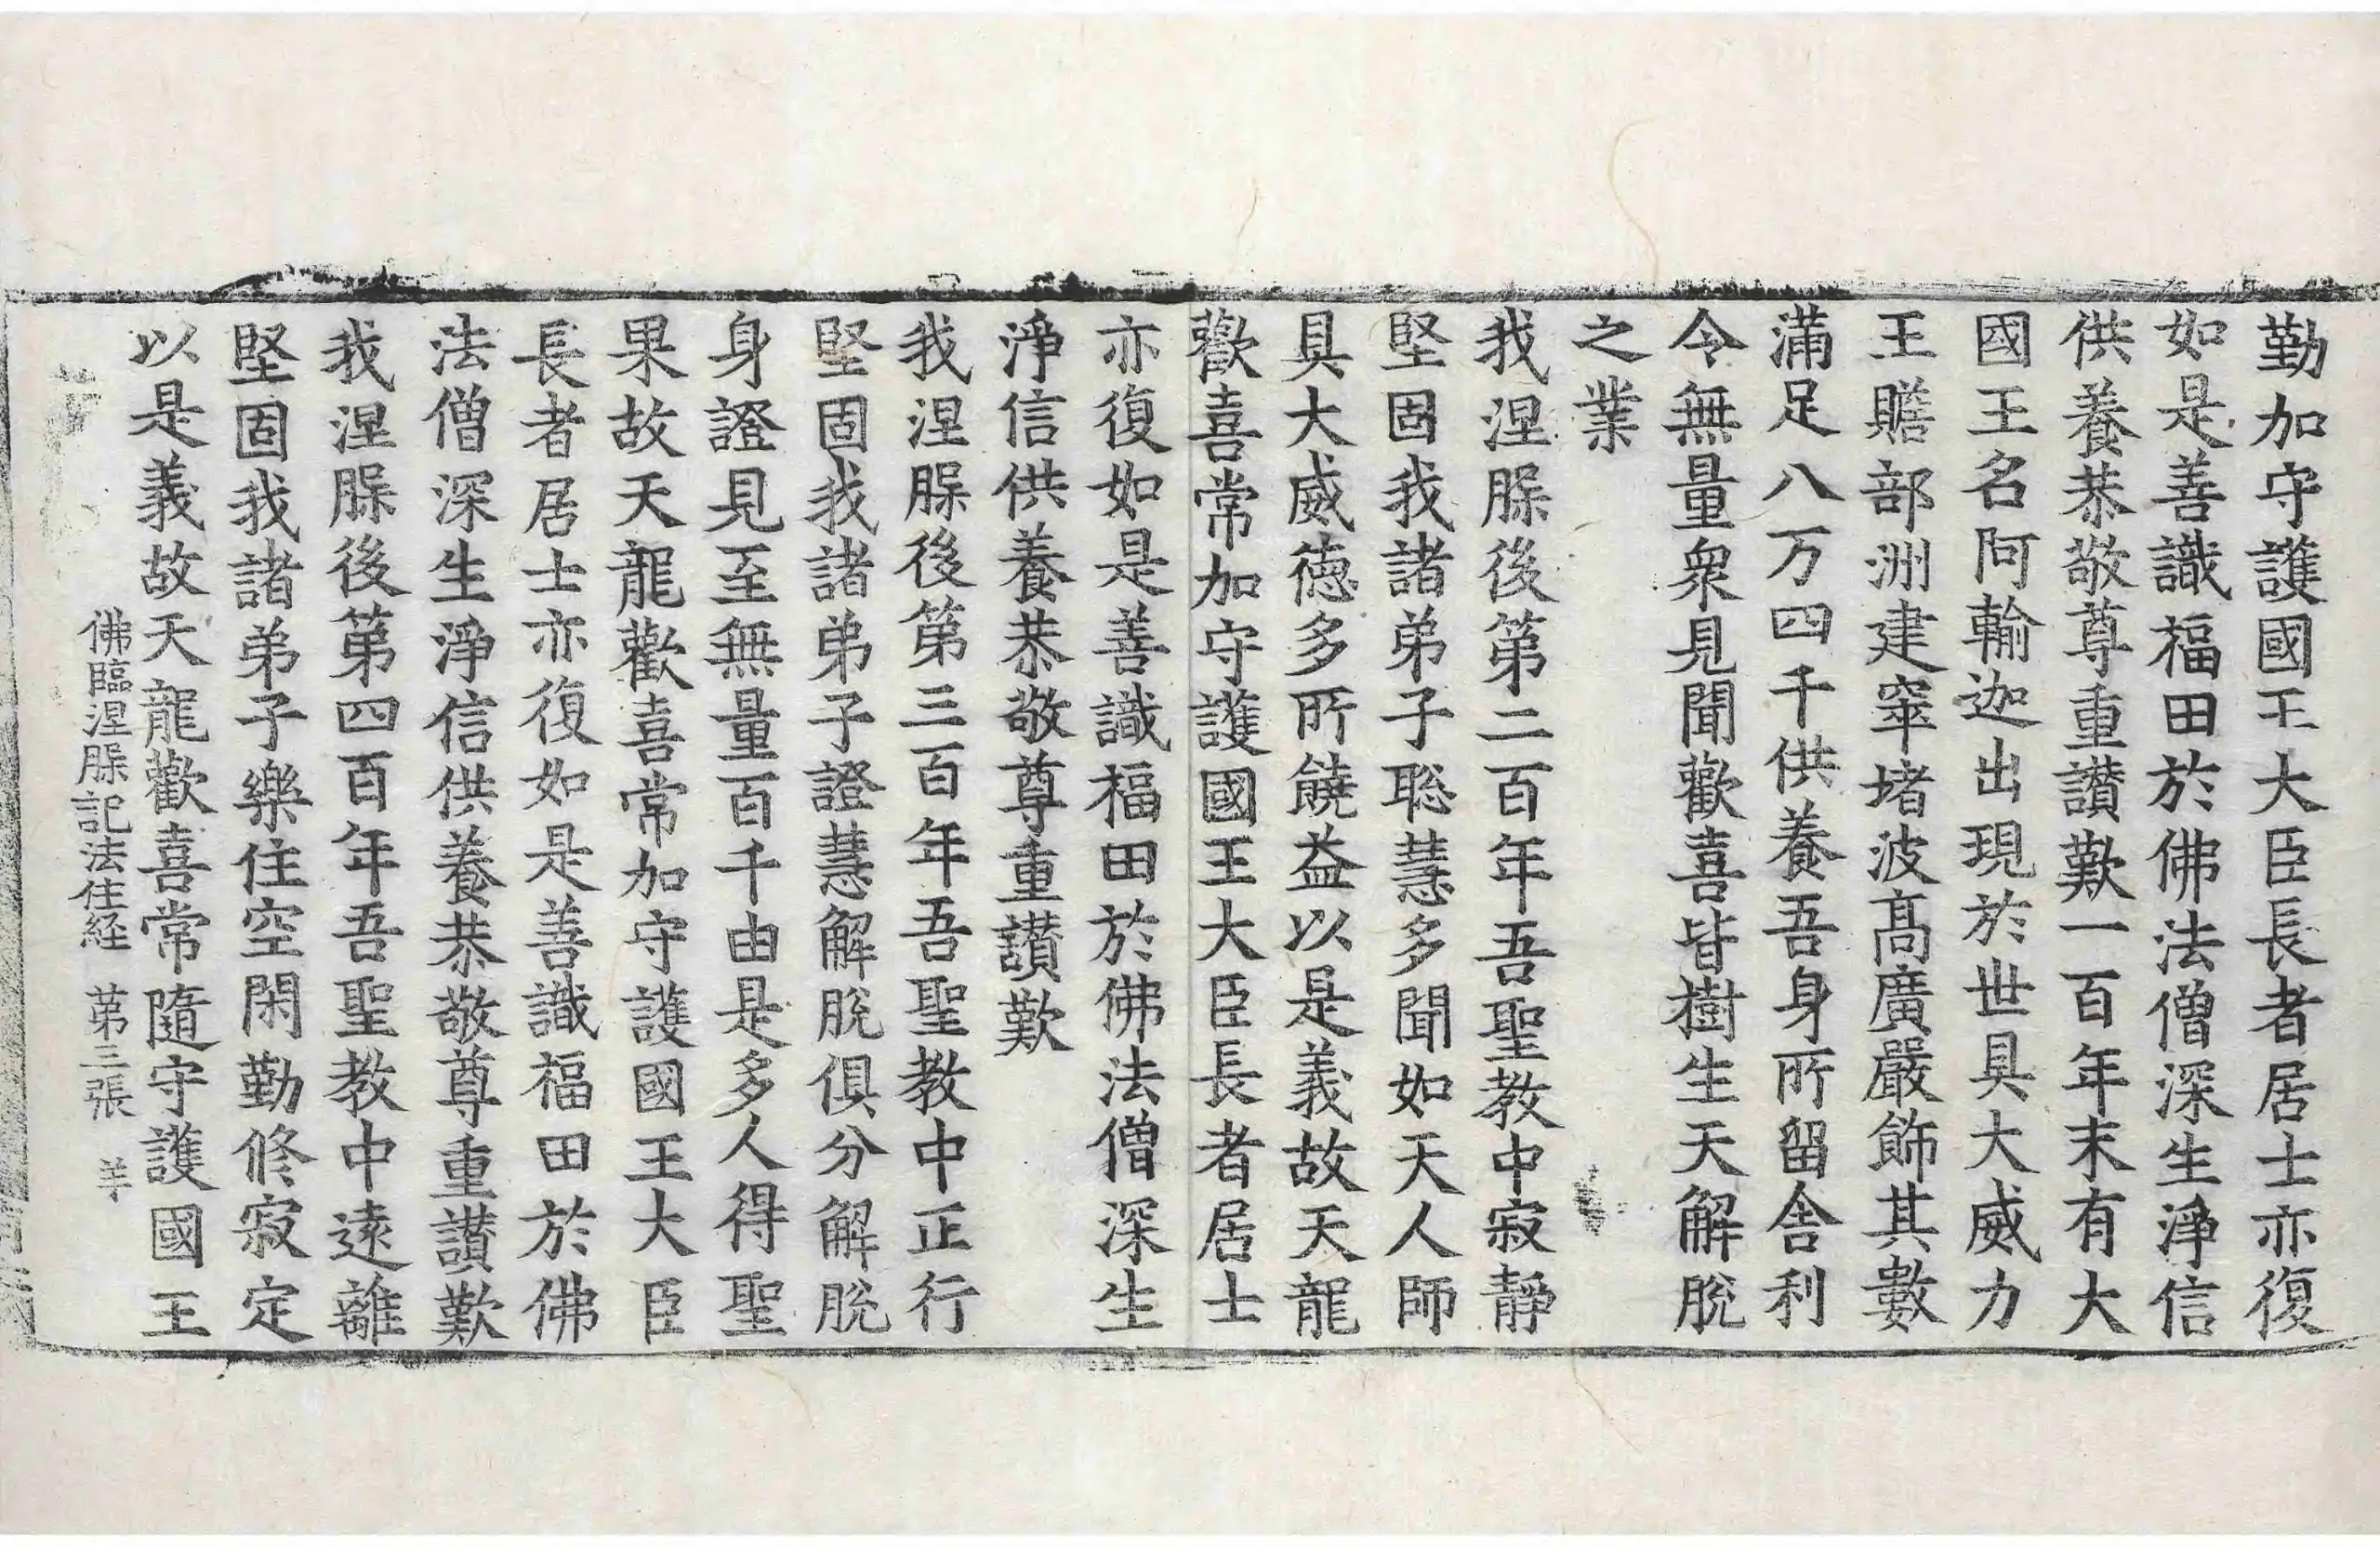 勤加守護國王大臣長者居士亦復
如是善識福田於佛法僧深生淨信
供養恭敬尊重讃歎一百年末有大
國王名阿輸迦出現於世具大威力
王贍部洲建窣堵波髙廣嚴飾其數
滿足八万四千供養吾身所留舎利
令無量衆見聞歡喜皆樹生天解脫
之業
我涅脲後第二百年吾聖教中寂靜
堅固我諸弟子聡慧多聞如天人師
具大威德多所饒益以是義故天龍
歡喜常加守護國王大臣長者居士
亦復如是善識福田於佛法僧深生
淨信供養恭敬尊重讃歎
我涅脲後第三百年吾聖教中正行
堅固我諸弟子證慧解脫俱分解脫
身證見至無量百千由是多人得聖
果故天龍歡喜常加守護國王大臣
長者居士亦復如是善識福田於佛
法僧深生淨信供養恭敬尊重讃歎
我涅脲後第四百年吾聖教中遠離
堅固我諸弟子樂住空閑勤修寂定
以是義故天龍歡喜常隨守護國王
佛臨涅脲記法住経 第三張 羊